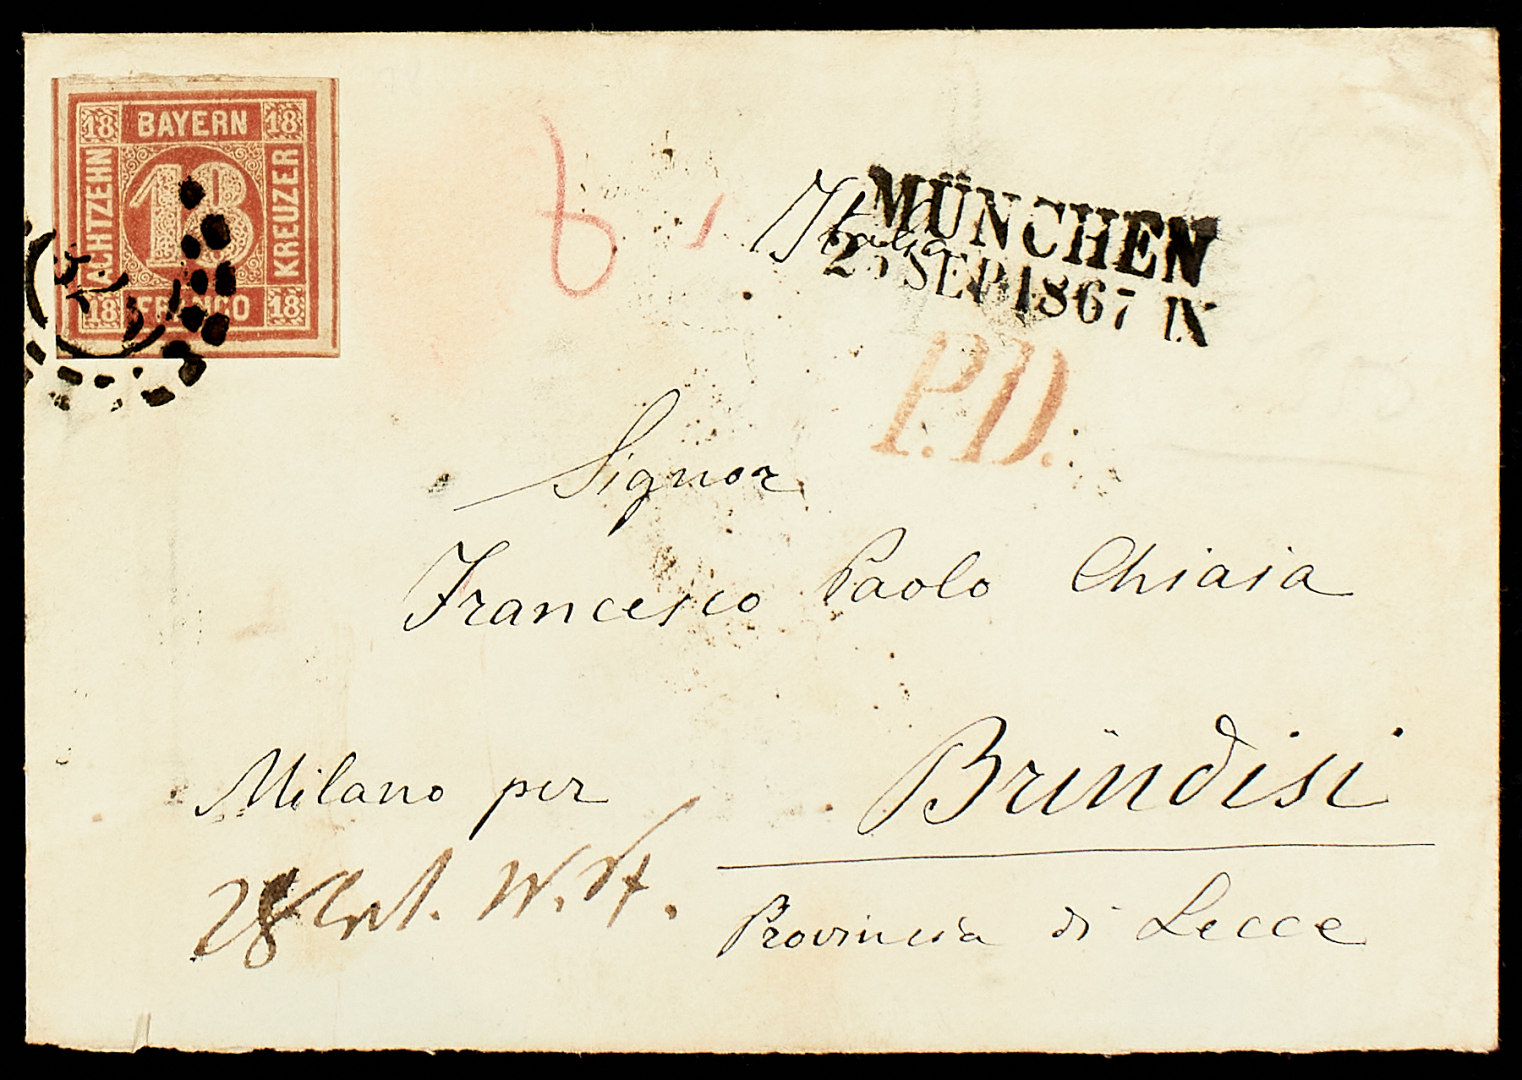 18 BAYERN 18
ACHTZEHN
18
KREUZER
18 FRANCO 18
Italia
MÜNCHEN
25 SEP 1867 IX
P.D.
Signor
Francesco Paolo Chiaia
Milano per
Brindisi
28 W. St.
Provincia di Lecce